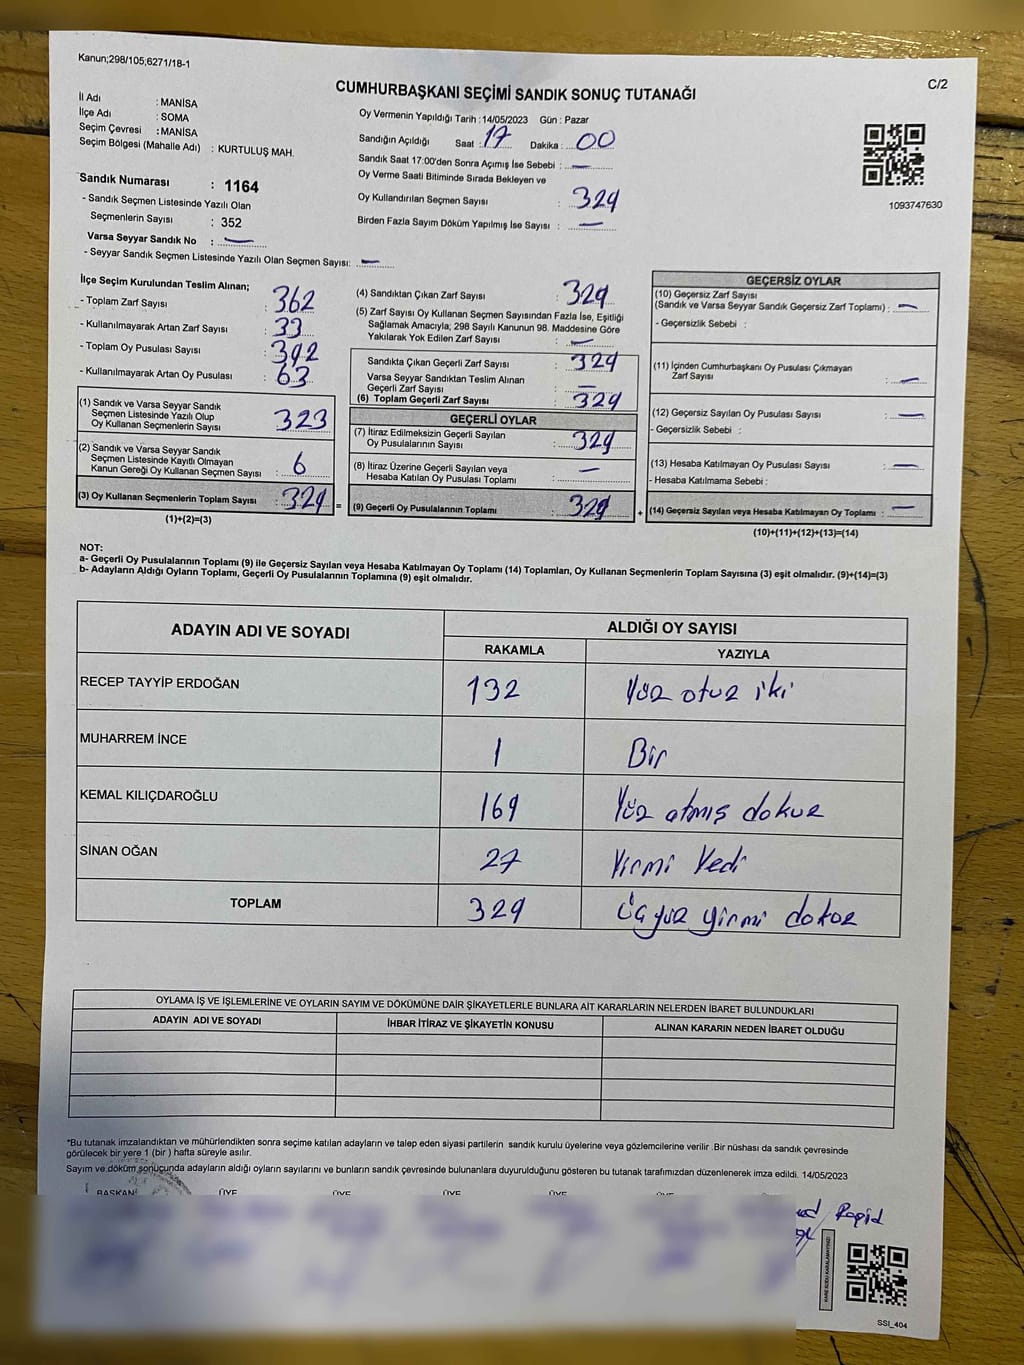 Kanun;298/105;6271/18-1
C/2
CUMHURBAŞKANI SEÇİMİ SANDIK SONUÇ TUTANAĞI
İl Adı : MANİSA
İlçe Adı : SOMA
Seçim Çevresi : MANİSA
Seçim Bölgesi (Mahalle Adı) : KURTULUŞ MAH.
Sandık Numarası : 1164
- Sandık Seçmen Listesinde Yazılı Olan
Seçmenlerin Sayısı : 352
Varsa Seyyar Sandık No : —
- Seyyar Sandık Seçmen Listesinde Yazılı Olan Seçmen Sayısı: —
Oy Vermenin Yapıldığı Tarih : 14/05/2023 Gün : Pazar
Sandığın Açıldığı Saat : 17 Dakika : 00
Sandık Saat 17:00'den Sonra Açımış İse Sebebi : —
Oy Verme Saati Bitiminde Sırada Bekleyen ve
Oy Kullandırılan Seçmen Sayısı : 329
Birden Fazla Sayım Döküm Yapılmış İse Sayısı : —
1093747630
İlçe Seçim Kurulundan Teslim Alınan;
- Toplam Zarf Sayısı : 362
- Kullanılmayarak Artan Zarf Sayısı : 33
- Toplam Oy Pusulası Sayısı : 392
- Kullanılmayarak Artan Oy Pusulası : 63
(1) Sandık ve Varsa Seyyar Sandık
Seçmen Listesinde Yazılı Olup
Oy Kullanan Seçmenlerin Sayısı : 323
(2) Sandık ve Varsa Seyyar Sandık
Seçmen Listesinde Kayıtlı Olmayan
Kanun Gereği Oy Kullanan Seçmen Sayısı : 6
(3) Oy Kullanan Seçmenlerin Toplam Sayısı : 329 =
(1)+(2)=(3)
(4) Sandıktan Çıkan Zarf Sayısı : 329
(5) Zarf Sayısı Oy Kullanan Seçmen Sayısından Fazla İse, Eşitliği
Sağlamak Amacıyla; 298 Sayılı Kanunun 98. Maddesine Göre
Yakılarak Yok Edilen Zarf Sayısı : —
Sandıkta Çıkan Geçerli Zarf Sayısı : 329
Varsa Seyyar Sandıktan Teslim Alınan
Geçerli Zarf Sayısı : —
(6) Toplam Geçerli Zarf Sayısı : 329
GEÇERLİ OYLAR
(7) İtiraz Edilmeksizin Geçerli Sayılan
Oy Pusulalarının Sayısı : 329
(8) İtiraz Üzerine Geçerli Sayılan veya
Hesaba Katılan Oy Pusulası Toplamı : —
(9) Geçerli Oy Pusulalarının Toplamı : 329 +
GEÇERSİZ OYLAR
(10) Geçersiz Zarf Sayısı
(Sandık ve Varsa Seyyar Sandık Geçersiz Zarf Toplamı) : —
- Geçersizlik Sebebi :
(11) İçinden Cumhurbaşkanı Oy Pusulası Çıkmayan
Zarf Sayısı : —
(12) Geçersiz Sayılan Oy Pusulası Sayısı : —
- Geçersizlik Sebebi :
(13) Hesaba Katılmayan Oy Pusulası Sayısı : —
- Hesaba Katılmama Sebebi :
(14) Geçersiz Sayılan veya Hesaba Katılmayan Oy Toplamı : —
(10)+(11)+(12)+(13)=(14)
NOT:
a- Geçerli Oy Pusulalarının Toplamı (9) ile Geçersiz Sayılan veya Hesaba Katılmayan Oy Toplamı (14) Toplamları, Oy Kullanan Seçmenlerin Toplam Sayısına (3) eşit olmalıdır. (9)+(14)=(3)
b- Adayların Aldığı Oyların Toplamı, Geçerli Oy Pusulalarının Toplamına (9) eşit olmalıdır.
ADAYIN ADI VE SOYADI
ALDIĞI OY SAYISI
RAKAMLA YAZIYLA
RECEP TAYYİP ERDOĞAN 132 Yüz otuz iki
MUHARREM İNCE 1 Bir
KEMAL KILIÇDAROĞLU 169 Yüz atmış dokuz
SİNAN OĞAN 27 Yirmi Yedi
TOPLAM 329 Üçyüz yirmi dokuz
OYLAMA İŞ VE İŞLEMLERİNE VE OYLARIN SAYIM VE DÖKÜMÜNE DAİR ŞİKAYETLERLE BUNLARA AİT KARARLARIN NELERDEN İBARET BULUNDUKLARI
ADAYIN ADI VE SOYADI İHBAR İTİRAZ VE ŞİKAYETİN KONUSU ALINAN KARARIN NEDEN İBARET OLDUĞU
*Bu tutanak imzalandıktan ve mühürlendikten sonra seçime katılan adayların ve talep eden siyasi partilerin sandık kurulu üyelerine veya gözlemcilerine verilir .Bir nüshası da sandık çevresinde
görülecek bir yere 1 (bir ) hafta süreyle asılır.
Sayım ve döküm sonuçunda adayların aldığı oyların sayılarını ve bunların sandık çevresinde bulunanlara duyurulduğunu gösteren bu tutanak tarafımızdan düzenlenerek imza edildi. 14/05/2023
BAŞKAN ÜYE ÜYE ÜYE ÜYE
KARE KODU KARALAMAYINIZ!
SSI_404